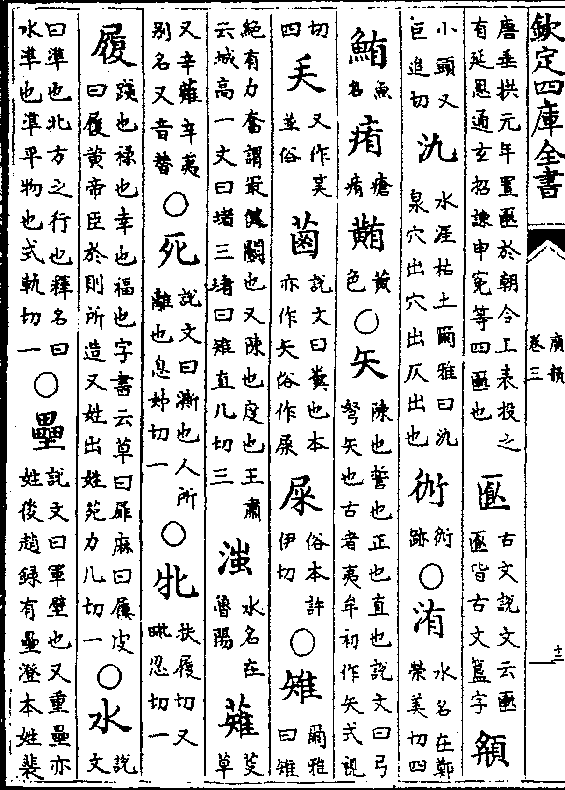 欽定四庫全書 廣韻 卷三 十一
唐垂拱元年置匭於朝令上表投之有延恩通玄招諫申冤等四匭也 匭 古文說文云匭匭皆古文簋字 頯
小頭又巨追切 氿 水涯枯土爾雅曰氿泉穴出穴出仄出也 𧗪 𧗪跡 ○ 洧 水名在鄭榮美切四
鮪 魚名 痏 瘡痏 䵋 黃色 ○ 矢 陳也誓也正也直也說文曰弓弩矢也古者夷牟初作矢式視
切四 又作 並俗 𦳊 說文曰糞也本亦作矢俗作屎 屎 俗本許伊切 ○ 雉 爾雅曰雉
絕有力奮謂最健鬬也又陳也度也王肅云城高一丈曰堵三堵曰雉直几切三 滍 水名在魯陽 薙 芟草
又辛薙辛夷別名又音替 ○ 死 說文曰澌也人所離也息姊切一 ○ 牝 扶履切又毗忍切一
履 踐也祿也幸也福也字書云草曰屝麻曰屨皮曰履黃帝臣於則所造又姓出姓苑力几切一 ○ 水 說文
曰準也北方之行也釋名曰水準也準平物也式軌切一 ○ 壘 說文曰軍壁也又重壘亦姓後趙錄有壘澄本姓裴